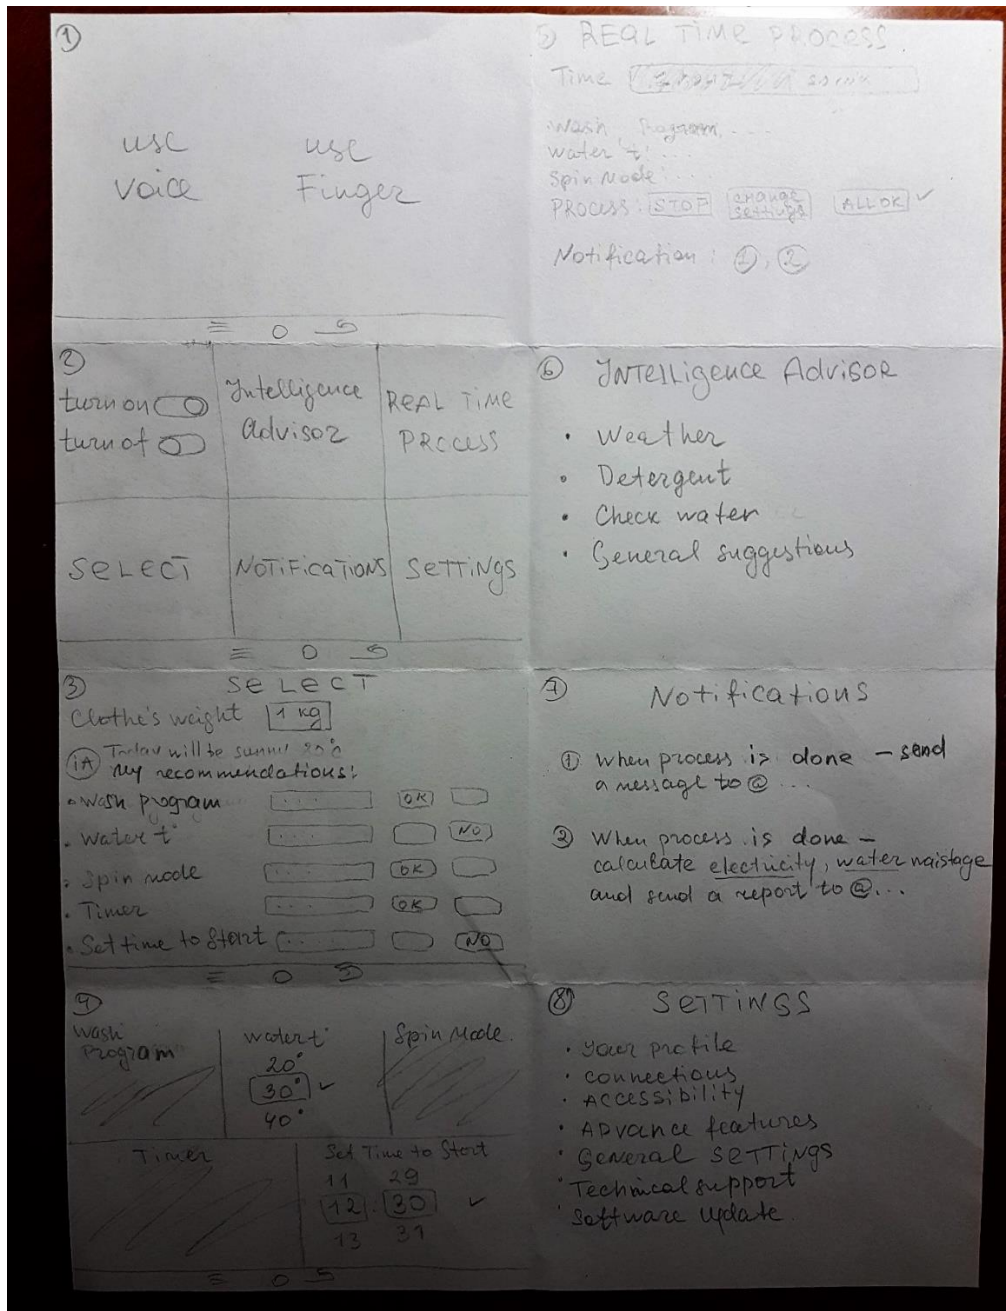 ①
use use
Voice Finger
②
turn on
turn of
Intelligence
Advisor
REAL TIME
PROCESS
SELECT
NOTIFICATIONS
SETTINGS
③
SELECT
Clothe's weight 1 kg
iA Today will be sunny 20°c
My recommendations:
• Wash program ... OK
• Water t° ... NO
• Spin mode ... OK
• Timer ... OK
• Set time to Start ... NO
Wash
Program
Water t°
20°
30° ✓
40°
Spin Mode
Timer
Set Time to Start
11 29
12 : 30 ✓
13 31
5 REAL TIME PROCESS
Time
Wash Program ...
Water t° ...
Spin Mode: ...
PROCESS: STOP change settings ALL OK ✓
Notification: ①, ②
⑥ INTElligence Advisor
• Weather
• Detergent
• Check water
• General suggestions
⑦ Notifications
① When process is done – send
a message to @ ...
② When process is done –
calculate electricity, water waistage
and send a report to @...
⑧ SETTINGS
• your profile
• connections
• Accessibility
• ADvance features
• General SETTINGS
• Technical support
• Software update